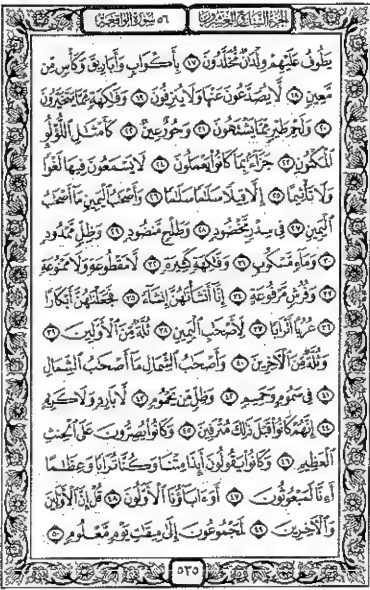 الجزء السابع والعشرون ٥٦ سورة الواقعة
يَطُوفُ عَلَيْهِمْ وِلْدَٰنٌ مُّخَلَّدُونَ ١٧ بِأَكْوَابٍ وَأَبَارِيقَ وَكَأْسٍ مِّن
مَّعِينٍ ١٨ لَّا يُصَدَّعُونَ عَنْهَا وَلَا يُنزِفُونَ ١٩ وَفَٰكِهَةٍ مِّمَّا يَتَخَيَّرُونَ
٢٠ وَلَحْمِ طَيْرٍ مِّمَّا يَشْتَهُونَ ٢١ وَحُورٌ عِينٌ ٢٢ كَأَمْثَٰلِ ٱللُّؤْلُوِٕ
ٱلْمَكْنُونِ ٢٣ جَزَآءًۢ بِمَا كَانُوا۟ يَعْمَلُونَ ٢٤ لَا يَسْمَعُونَ فِيهَا لَغْوًا
وَلَا تَأْثِيمًا ٢٥ إِلَّا قِيلًا سَلَٰمًا سَلَٰمًا ٢٦ وَأَصْحَٰبُ ٱلْيَمِينِ مَآ أَصْحَٰبُ
ٱلْيَمِينِ ٢٧ فِى سِدْرٍ مَّخْضُودٍ ٢٨ وَطَلْحٍ مَّنضُودٍ ٢٩ وَظِلٍّ مَّمْدُودٍ
٣٠ وَمَآءٍ مَّسْكُوبٍ ٣١ وَفَٰكِهَةٍ كَثِيرَةٍ ٣٢ لَّا مَقْطُوعَةٍ وَلَا مَمْنُوعَةٍ
٣٣ وَفُرُشٍ مَّرْفُوعَةٍ ٣٤ إِنَّآ أَنشَأْنَٰهُنَّ إِنشَآءً ٣٥ فَجَعَلْنَٰهُنَّ أَبْكَارًا
٣٦ عُرُبًا أَتْرَابًا ٣٧ لِّأَصْحَٰبِ ٱلْيَمِينِ ٣٨ ثُلَّةٌ مِّنَ ٱلْأَوَّلِينَ ٣٩
وَثُلَّةٌ مِّنَ ٱلْءَاخِرِينَ ٤٠ وَأَصْحَٰبُ ٱلشِّمَالِ مَآ أَصْحَٰبُ ٱلشِّمَالِ
٤١ فِى سَمُومٍ وَحَمِيمٍ ٤٢ وَظِلٍّ مِّن يَحْمُومٍ ٤٣ لَّا بَارِدٍ وَلَا كَرِيمٍ
٤٤ إِنَّهُمْ كَانُوا۟ قَبْلَ ذَٰلِكَ مُتْرَفِينَ ٤٥ وَكَانُوا۟ يُصِرُّونَ عَلَى ٱلْحِنثِ
ٱلْعَظِيمِ ٤٦ وَكَانُوا۟ يَقُولُونَ أَئِذَا مِتْنَا وَكُنَّا تُرَابًا وَعِظَٰمًا
أَءِنَّا لَمَبْعُوثُونَ ٤٧ أَوَءَابَآؤُنَا ٱلْأَوَّلُونَ ٤٨ قُلْ إِنَّ ٱلْأَوَّلِينَ
وَٱلْءَاخِرِينَ ٤٩ لَمَجْمُوعُونَ إِلَىٰ مِيقَٰتِ يَوْمٍ مَّعْلُومٍ ٥٠
٥٣٥